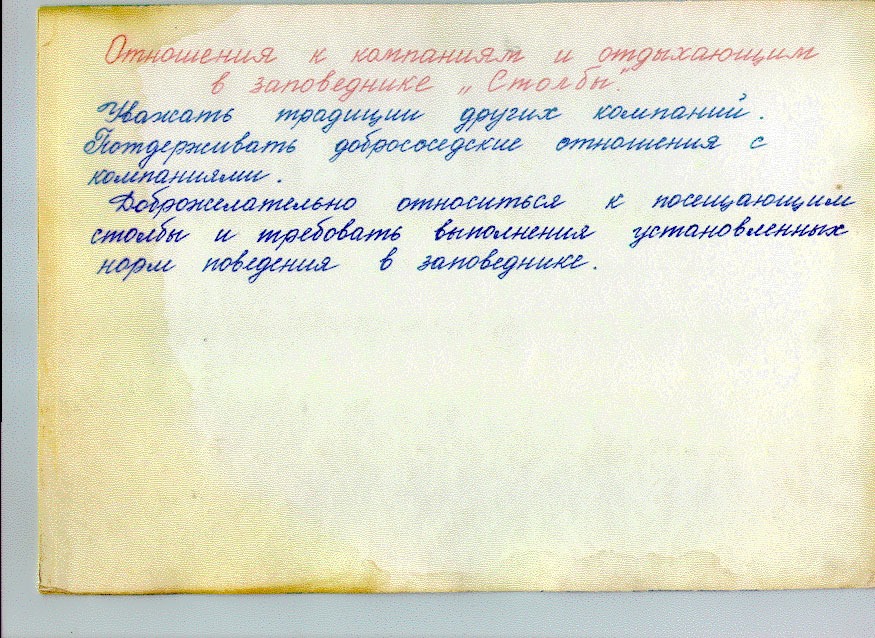 Отношения к компаниям и отдыхающим
в заповеднике „Столбы".
Уважать традиции других компаний.
Потдерживать добрососедские отношения с
компаниями.
Доброжелательно относиться к посещающим
столбы и требовать выполнения установленных
норм поведения в заповеднике.